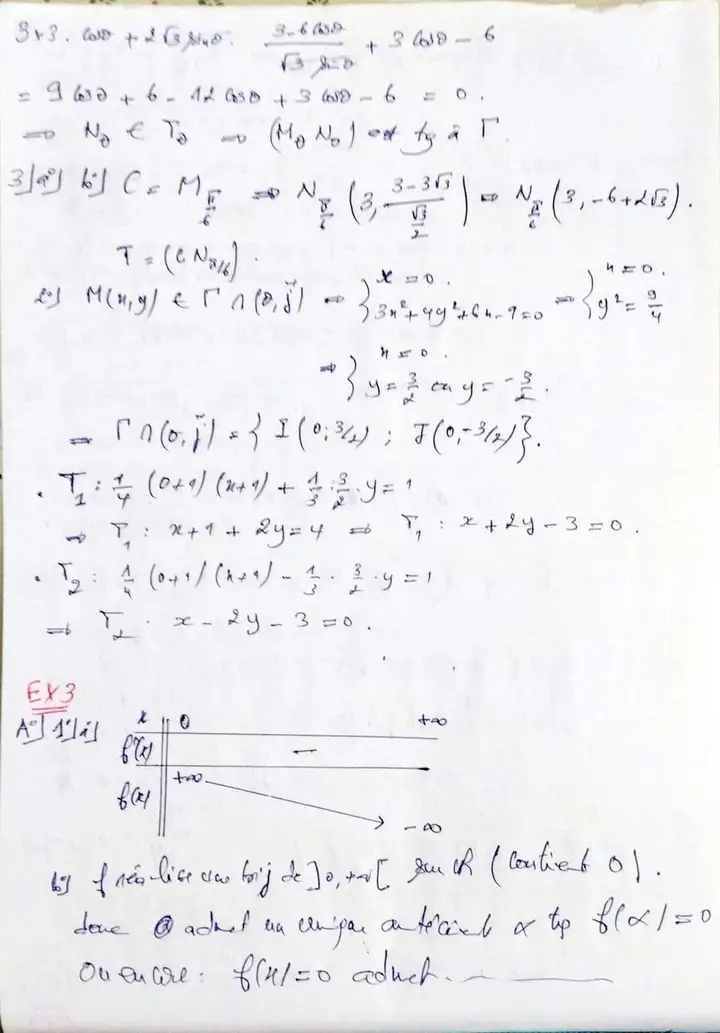 3×3. cosθ + 2√3 sinθ. (3-6cosθ)/(√3 sinθ) + 3 cosθ - 6
= 9 cosθ + 6 - 12 cosθ + 3 cosθ - 6 = 0.
⇒ Nθ ∈ Tθ ⇒ (Mθ Nθ) est tg à Γ.
3/a°/ b°/ C = M_π/6 ⇒ N_π/6 (3, (3-3√3)/(√3/2)) ⇒ N_π/6 (3, -6+2√3).
T = (C N_π/6).
2°/ M(x,y) ∈ Γ ∩ (O,j⃗) ⇒ { x = 0. 3x²+4y²+6x-9=0 ⇒ { x = 0. y² = 9/4
⇒ { x = 0. y = 3/2 ou y = -3/2.
⇒ Γ∩(O,j⃗) = { I(0; 3/2) ; J(0,-3/2) }.
. T₁ : 1/4 (0+1) (x+1) + 1/3 . 3/2 . y = 1
⇒ T₁ : x+1 + 2y = 4 ⇒ T₁ : x + 2y - 3 = 0.
. T₂ : 1/4 (0+1) (x+1) - 1/3 . 3/2 . y = 1
⇒ T₂ . x - 2y - 3 = 0.
EX3
A°/ 1°/
x 0 +∞
f'(x) -
f(x) +∞ -∞
b°/ f réalise une bij de ]0,+∞[ sur IR (contient 0).
donc 0 admet un unique antécédent α tq f(α) = 0
Ou encore : f(x) = 0 admet.